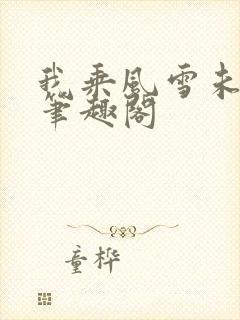 我乘风雪未
笔趣阁
童桦